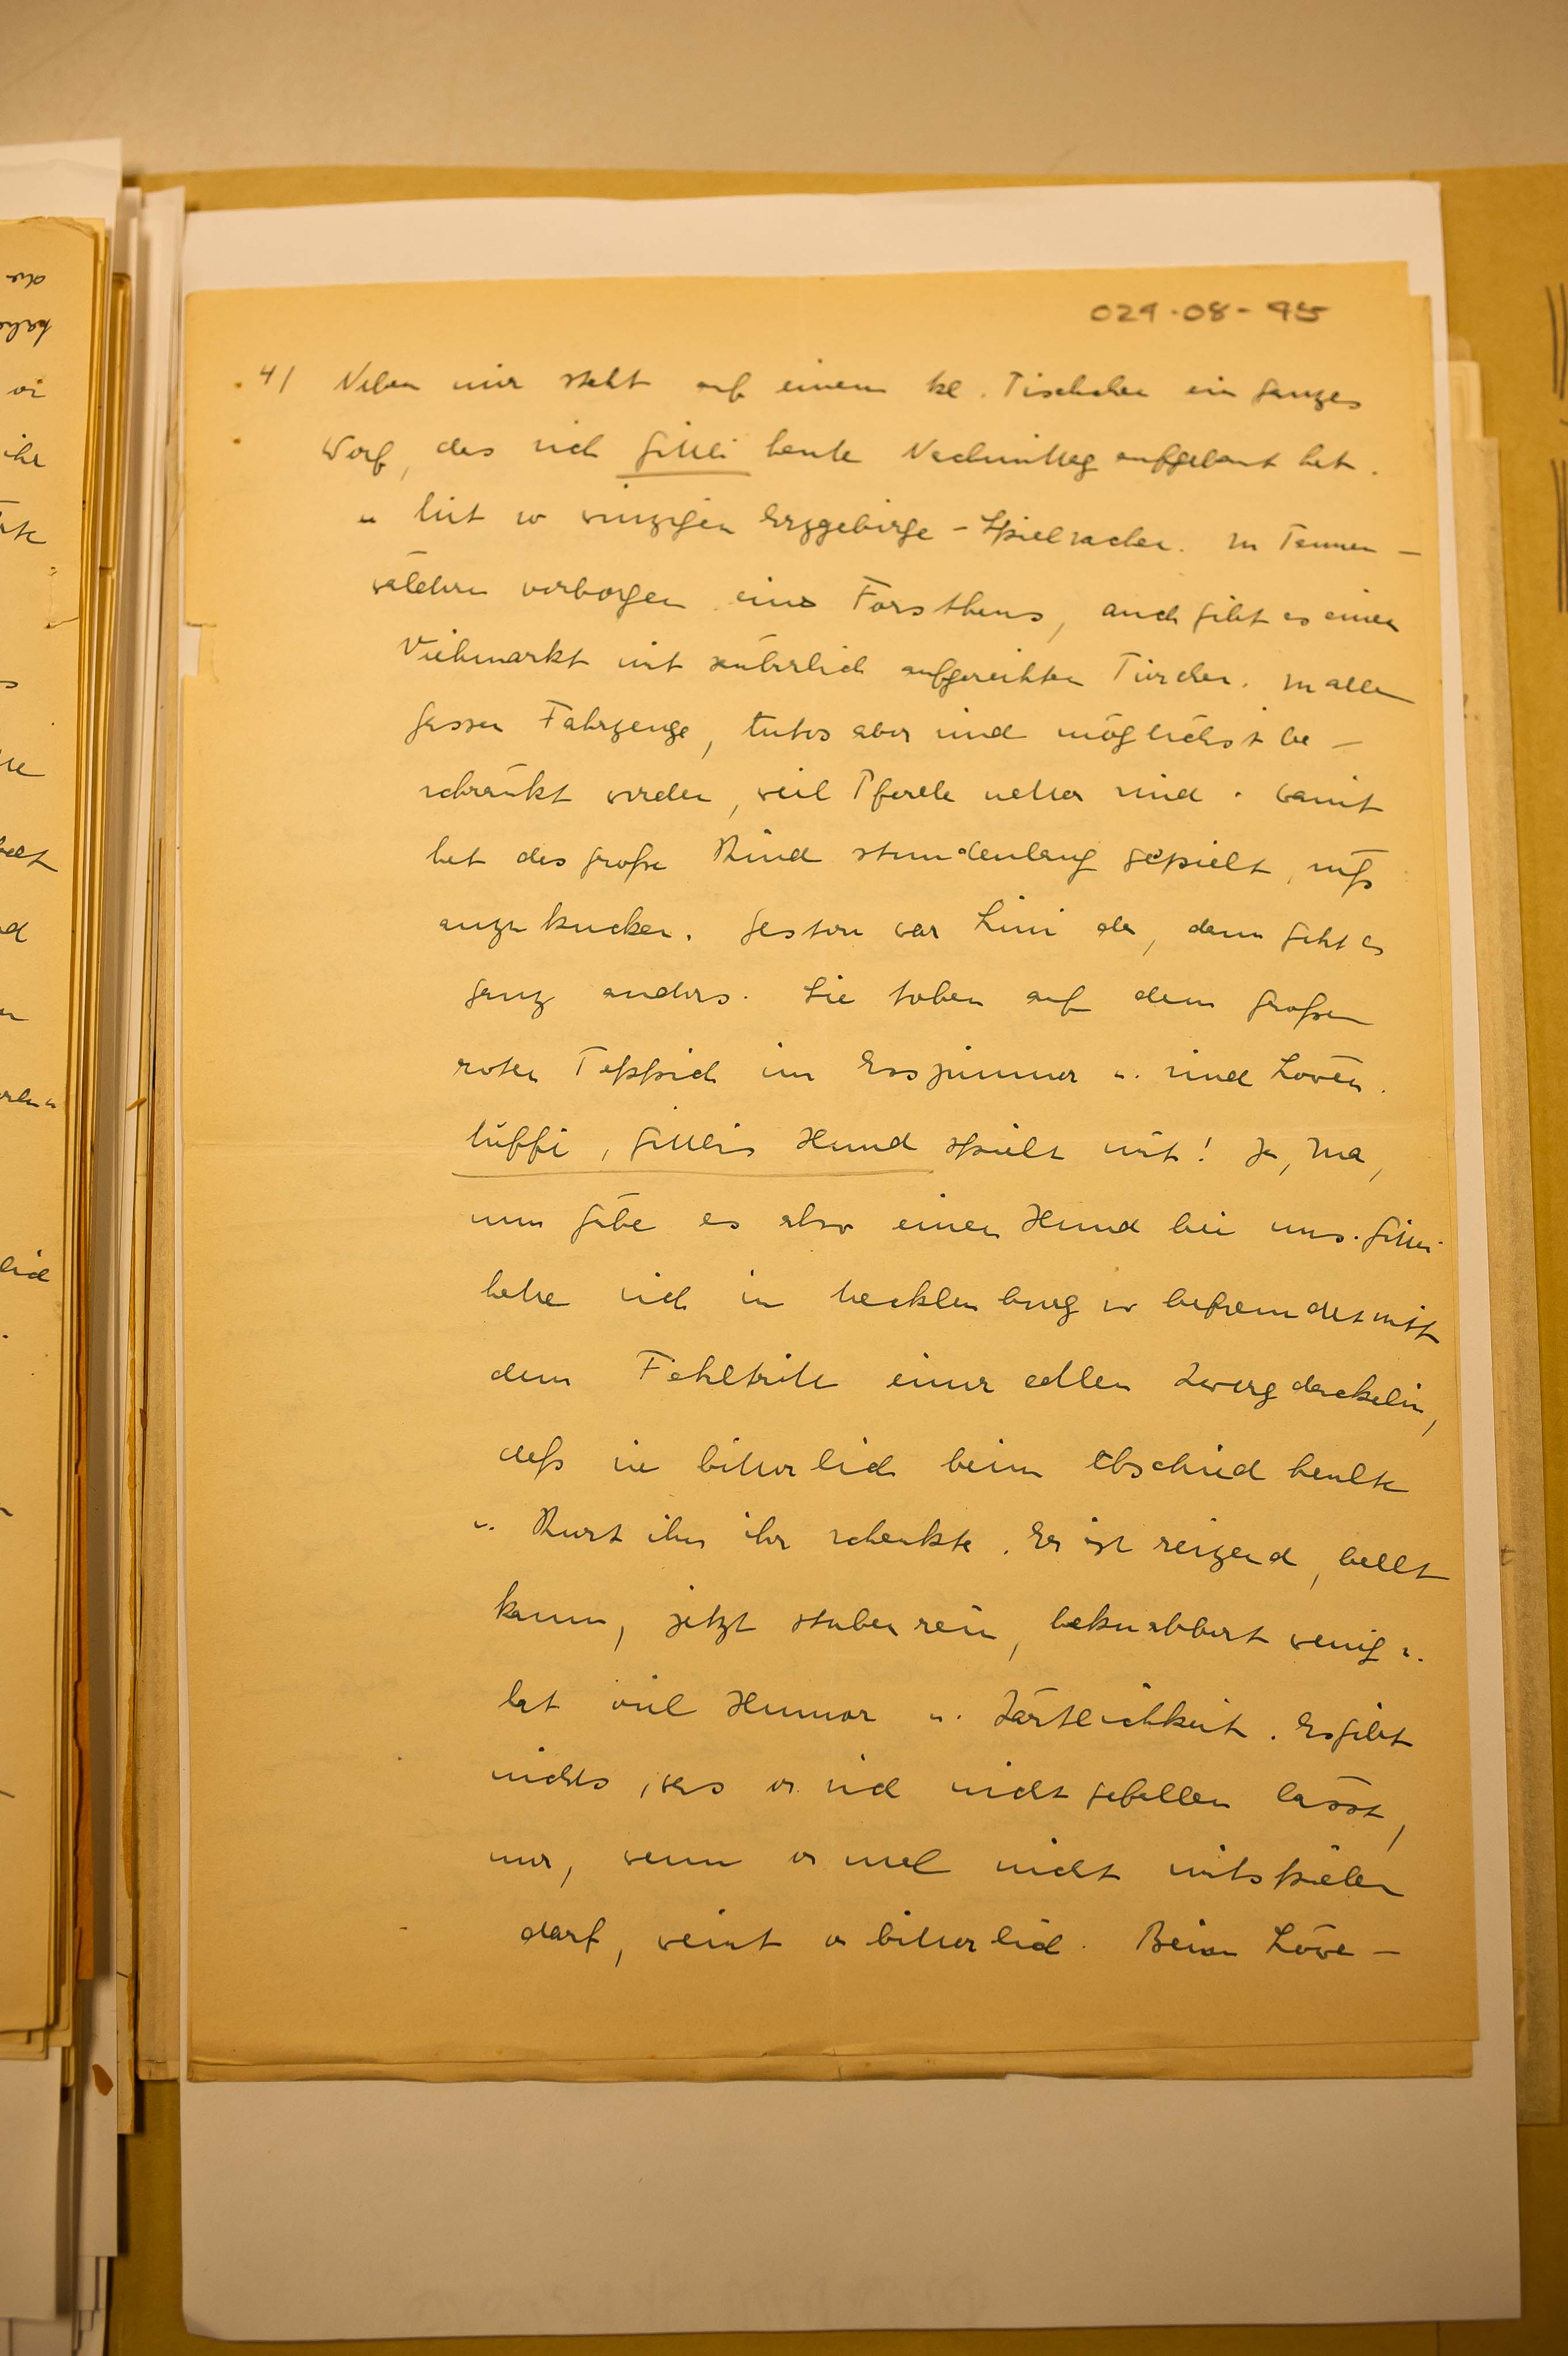 029-08-45
4/ Neben mir steht auf einem kl. Tischchen ein ganzes
Dorf, das sich Gitti heute Nachmittag aufgebaut hat.
so winzigen Erzgebirge-Spielsachen. In Tannen-
wäldern verborgen eins Forsthaus, auch gibt es einen
Viehmarkt mit säuberlich aufgereihten Tierchen. In allen
Gassen Fahrzeuge, Autos aber sind möglichst be-
schränkt worden, weil Pferde netter sind. Damit
hat das große Kind stundenlang gespielt, süß
anzukucken. Gestern war Lini da, dann geht es
ganz anders. Sie toben auf dem großen
roten Teppich im Esszimmer u. sind Löwen.
Gittis Hund spielt mit! Ja, Ma,
nun gäbe es also einen Hund bei uns. Gitti
hatte sich in Mecklenburg so befreundet mit
dem Fehltritt einer edlen Zwergdackelin,
daß sie bitterlich beim Abschied heulte
u. Kurt ihn ihr schenkte. Er ist reizend, bellt
kaum, jetzt stubenrein, beknabbert wenig u.
hat viel Humor u. Zärtlichkeit. Es gibt
nichts, was er sich nicht gefallen lässt,
nur, wenn er mal nicht mitspielen
darf, weint er bitterlich. Beim Löwe-